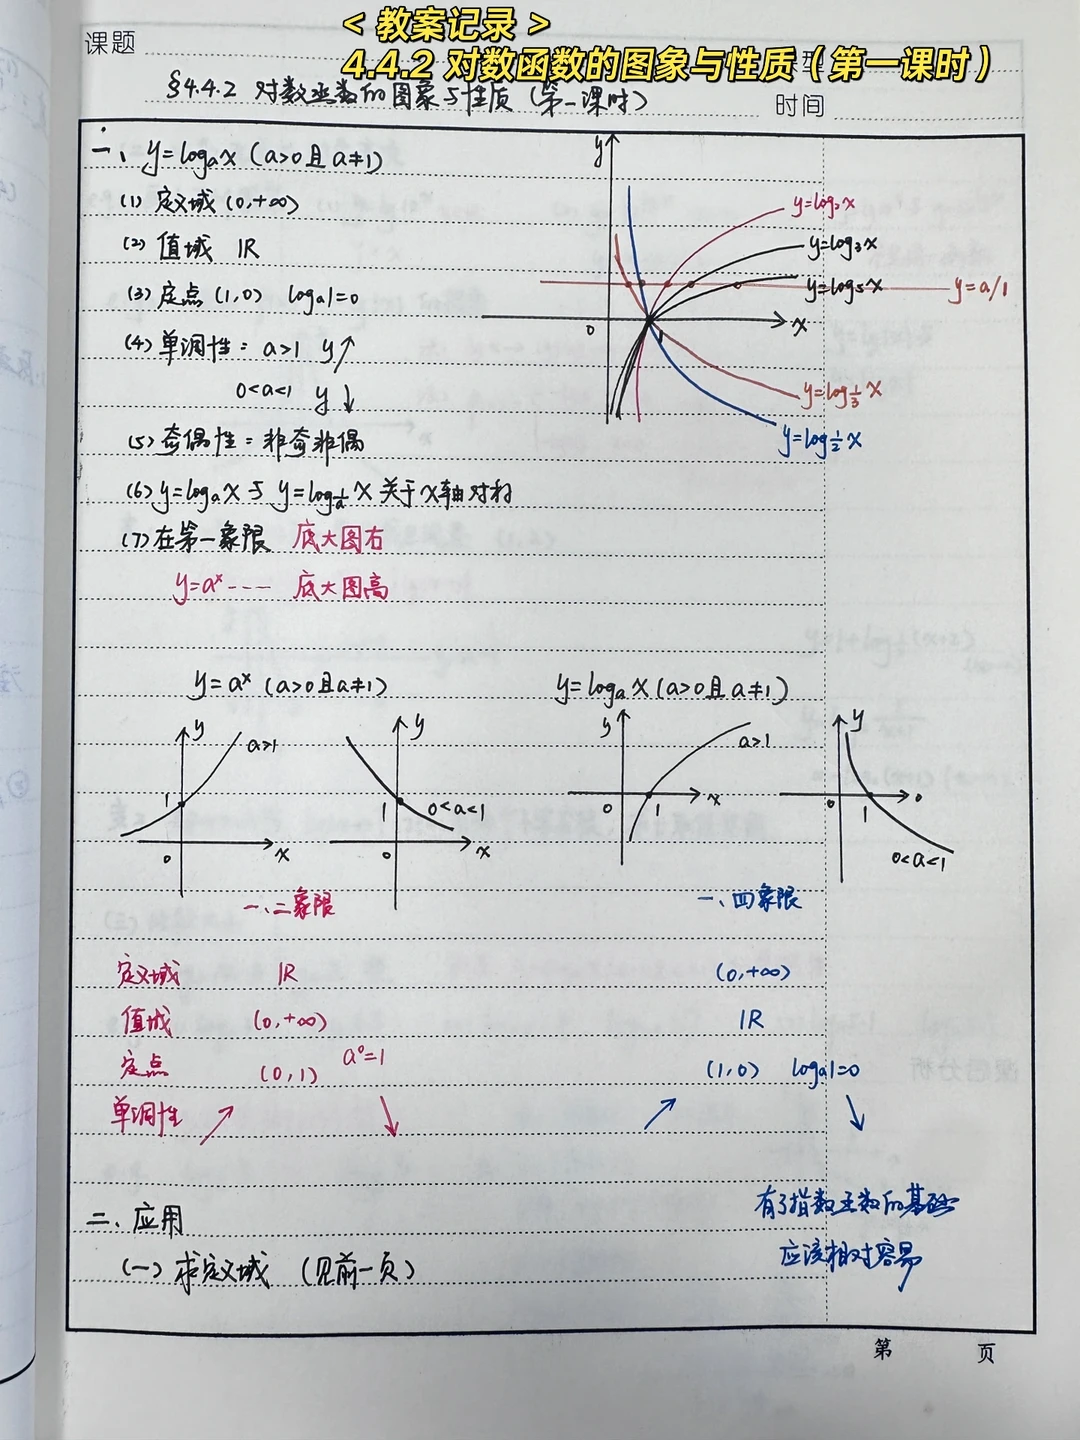 <教案记录>
4.4.2 对数函数的图象与性质（第一课时）
课题
§4.4.2 对数函数的图象与性质（第一课时）
型
时间
一、y=logₐx（a>0且a≠1）
(1) 定义域 (0,+∞)
(2) 值域 R
(3) 定点 (1,0) logₐ1=0
(4) 单调性：a>1 y↗
0<a<1 y↓
(5) 奇偶性：非奇非偶
(6) y=logₐx 与 y=log_{1/a}x 关于x轴对称
(7) 在第一象限 底大图右
y=aˣ---- 底大图高
y
y=log₂x
y=log₃x
y=log₅x
y=a/1
0
1
x
y=log_{1/3}x
y=log_{1/2}x
y=aˣ（a>0且a≠1）
y=logₐx（a>0且a≠1）
y a>1 1 0 x
y 1 0<a<1 0 x
y a>1 0 1 x
y 0 1 0<a<1
一、二象限
一、四象限
定义域 R (0,+∞)
值域 (0,+∞) R
定点 (0,1) a⁰=1 (1,0) logₐ1=0
单调性 ↗ ↘ ↗ ↘
二、应用
(一) 求定义域 （见前一页）
有了指数函数的基础
应该相对容易
第 页